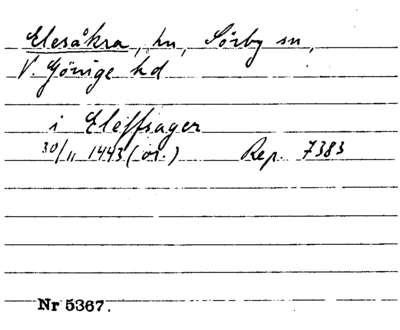 Elesåkra, hn, Sörby sn,
V. Göinge hd
i Eleffsager
30/11 1443 (or.) Rep. 7383
Nr 5367.